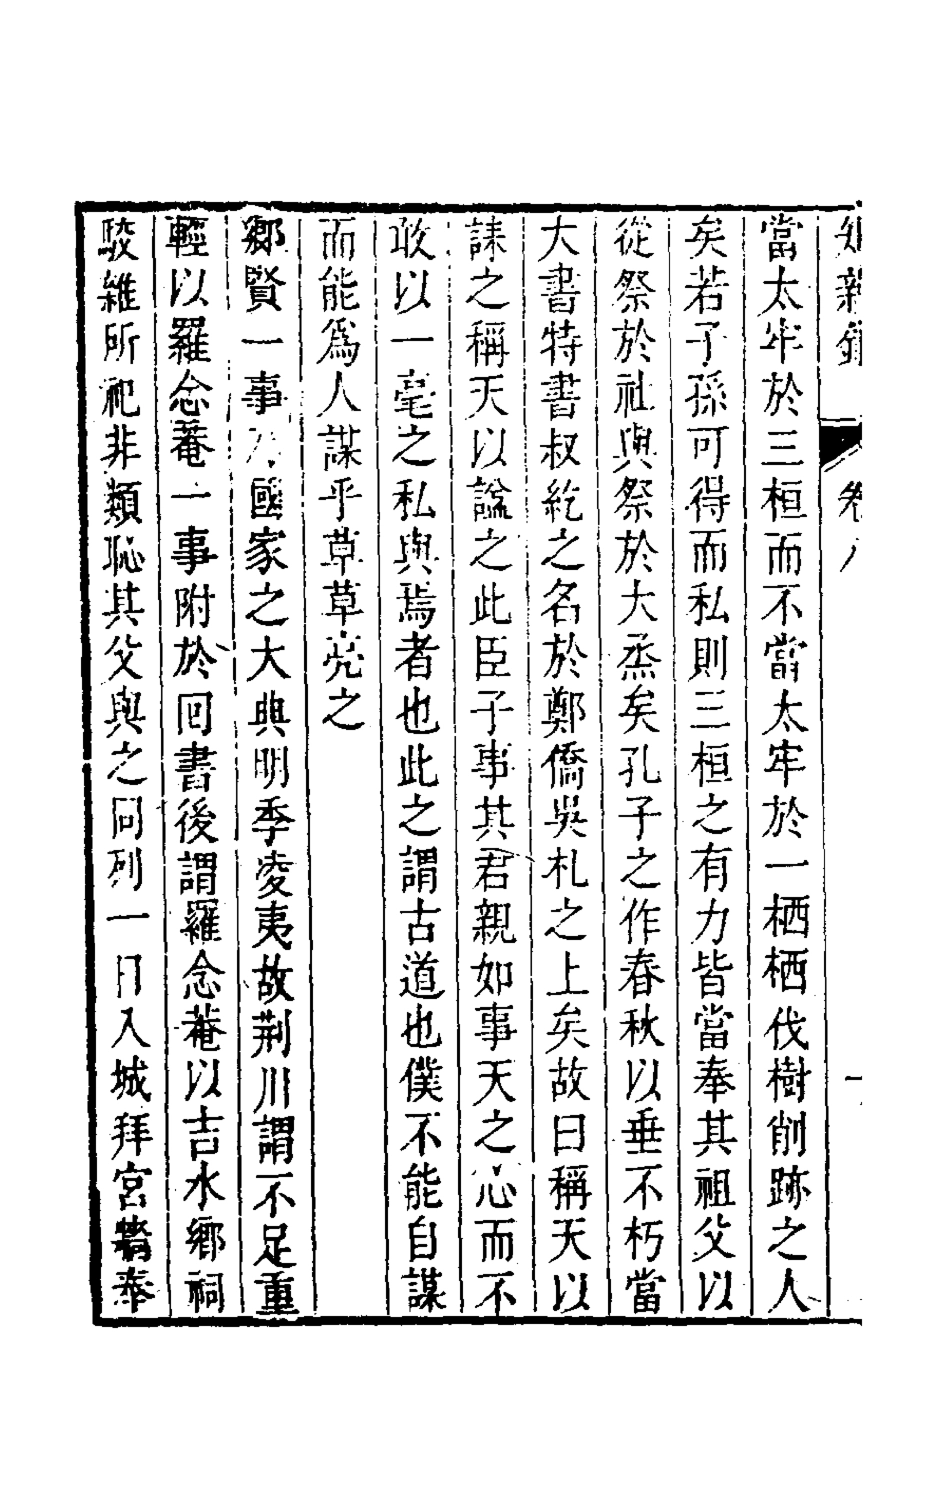 知新錄 卷八
當太牢於三桓而不當太牢於一栖栖伐樹削跡之人
矣若子孫可得而私則三桓之有力皆當奉其祖父以
從祭於社與祭於大烝矣孔子之作春秋以垂不朽當
大書特書叔紇之名於鄭僑吳札之上矣故曰稱天以
誄之稱天以諡之此臣子事其君親如事天之心而不
敢以一毫之私與焉者也此之謂古道也僕不能自謀
而能爲人謀乎草草亮之
鄉賢一事乃國家之大典明季凌夷故荆川謂不足重
輕以羅念菴一事附於囘書後謂羅念菴以吉水鄉祠
駁雜所祀非類恥其父與之同列一日入城拜宮牆奉